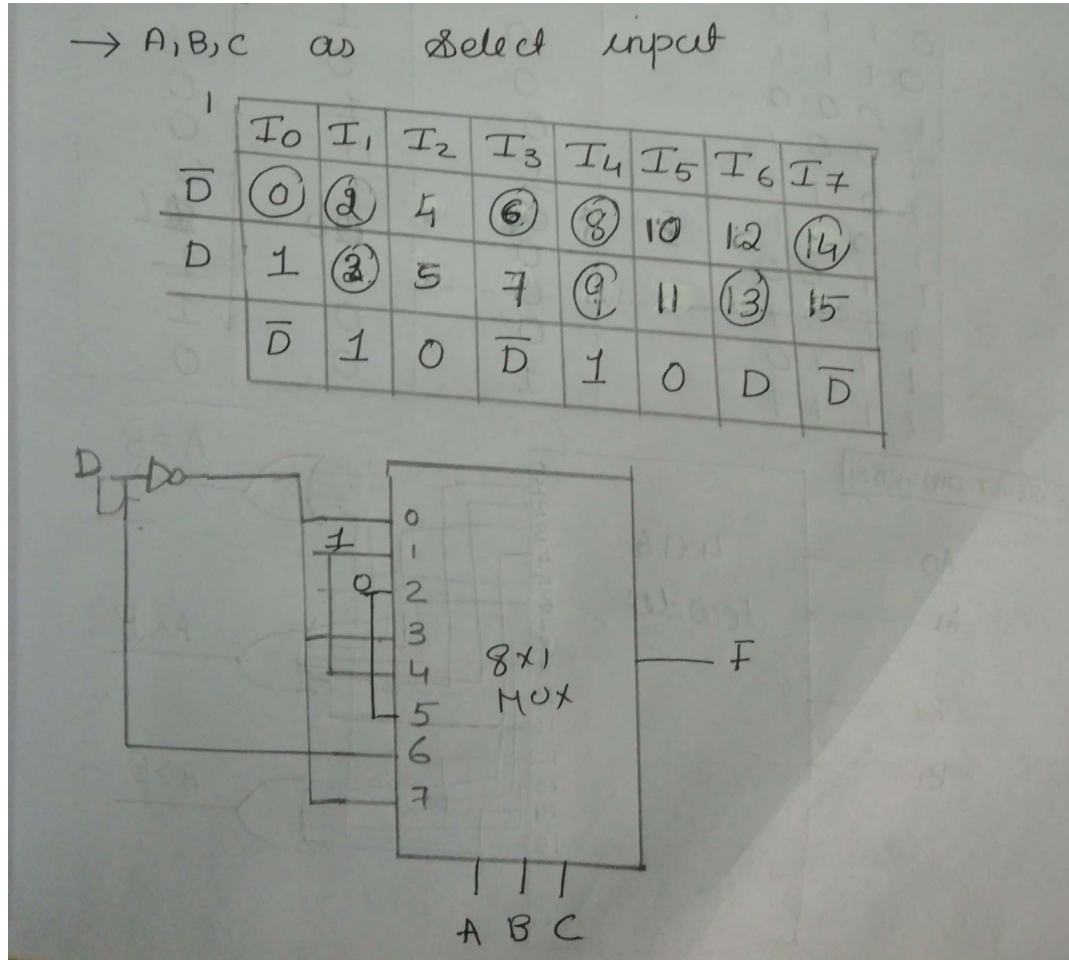 → A, B, C as Select input
I0 I1 I2 I3 I4 I5 I6 I7
D̅ 0 2 4 6 8 10 12 14
D 1 3 5 7 9 11 13 15
D̅ 1 0 D̅ 1 0 D D̅
D
0
1 1
0 2
3
4
5
6
7
8X1
MUX
F
A B C